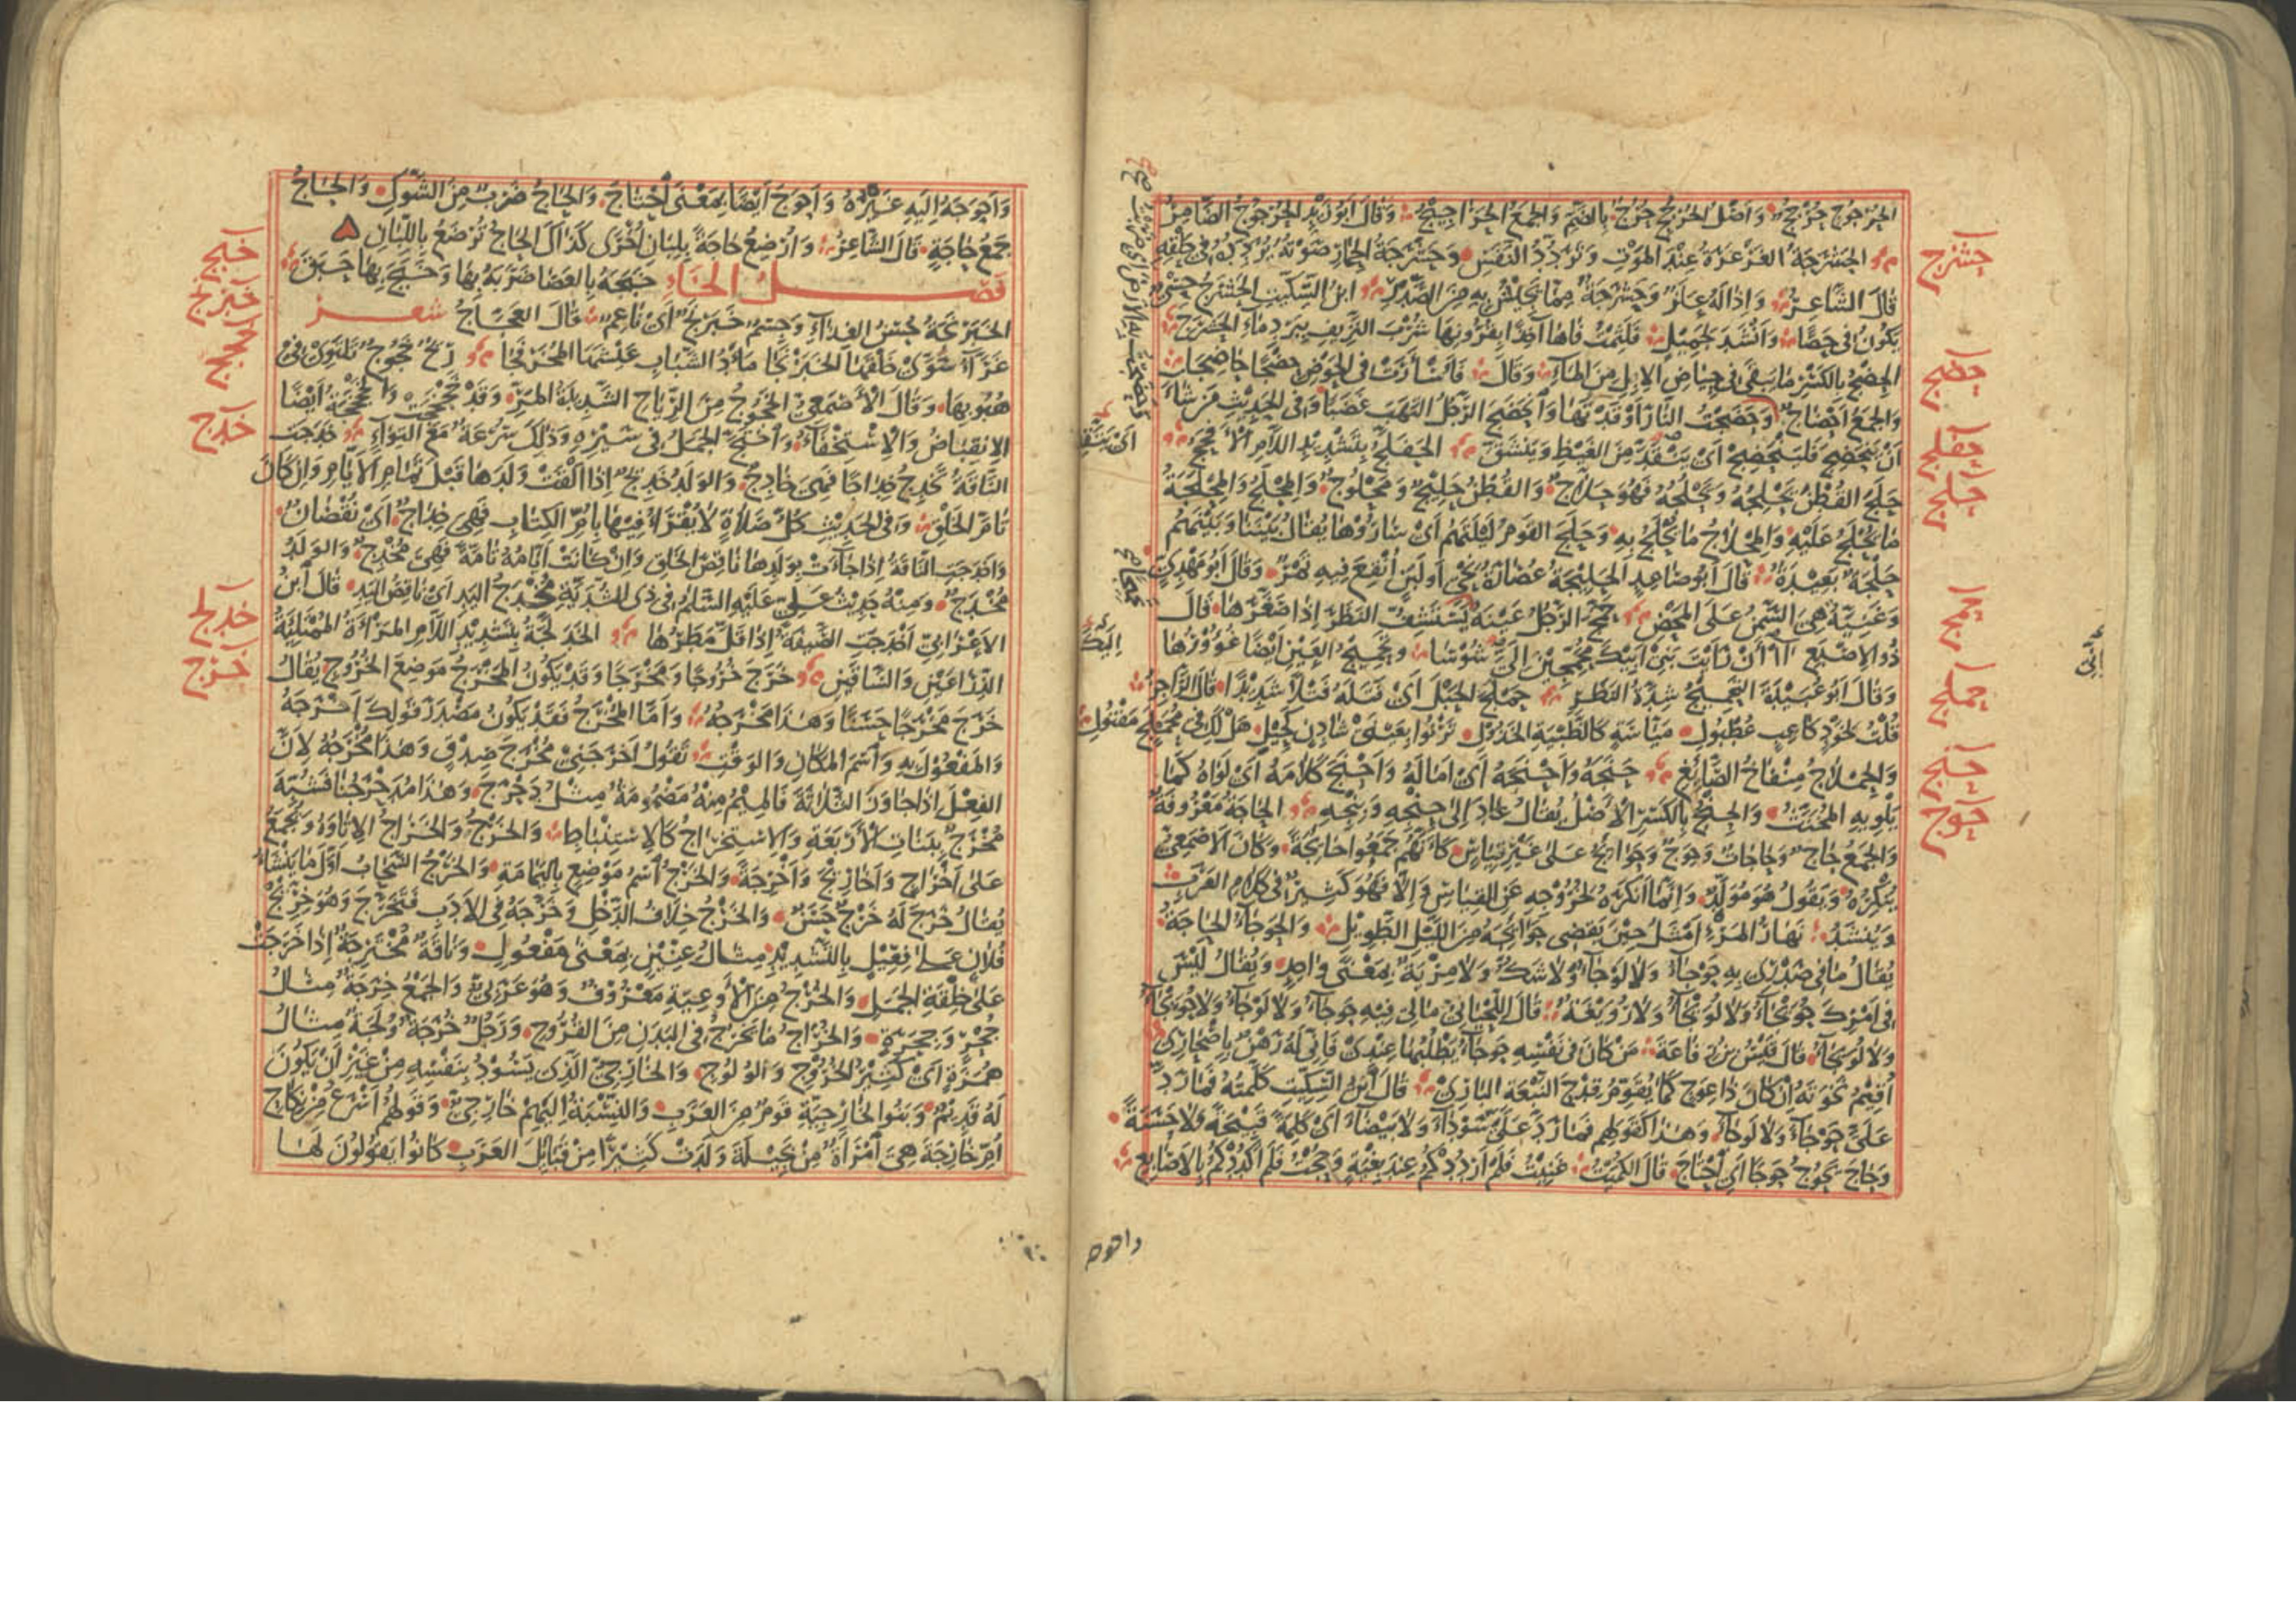 الحرجوج حرجج وأصل الحرجج حرج بالضم والجمع الحراجيج وقال أبو زيد الحرجوج الضامر
الحشرجة الغرغرة عند الموت وتردد النفس وحشرجة الحمار صوته يردده في حلقه
قال الشاعر وإذا له علز وحشرجة مما يجيش به من الصدر ابن السكيت الحشرج حسي
يكون في حصا وأنشد لجميل فلثمت فاها آخذا بقرونها شرب النزيف ببرد ماء الحشرج
الحضج بالكسر ما يبقى في حياض الإبل من الماء وقال فأسأرت في الحوض حضجا حاضجا
والجمع أحضاج وحضجت النار أوقدتها وانحضج الرجل التهب غضبا وفي الحديث فمن شاء
أن ينحضج فلينحضج أي ينقد من الغيظ وينشق الحفلج بتشديد اللام الأفحج
حلج القطن يحلجه ويحلجه فهو حلاج والقطن حليج ومحلوج والمحلج والمحلجة
ما يحلج عليه والمحلاج ما يحلج به وحلج القوم ليلتهم أي ساروها يقال بيننا وبينهم
حلجة بعيدة قال أبو صاعد الحليجة عصارة نحي أو لبن أنقع فيه تمر وقال أبو مهدي
وغنية هي السمن على المحض حمج الرجل عينه يستشف النظر إذا صغرها قال
ذو الإصبع أإن رأيت بني أبيك محمجين إلي شوسا وتحميج العين أيضا غؤورها
وقال أبو عبيدة التحميج شدة النظر حملج الحبل أي فتله فتلا شديدا قال الراجز
قلت لخود كاعب عطبول مياسة كالظبية الخذول ترنو بعيني شادن كحيل هل لك في محملج مفتول
والحملاج منفاخ الصائغ حنجه وأحنجه أي أماله وأحنج كلامه أي لواه كما
يلويه المخنث والحنج بالكسر الأصل يقال عاد إلى حنجه وبنجه الحاجة معروفة
والجمع حاج وحاجات وحوج وحوائج على غير قياس كأنهم جمعوا حائجة وكان الأصمعي
ينكره ويقول هو مولد وإنما أنكره لخروجه عن القياس وإلا فهو كثير في كلام العرب
وينشد نهار المرء أمثل حين يقضى حوائجه من الليل الطويل والحوجاء الحاجة
يقال ما في صدري به حوجاء ولا لوجاء ولا شك ولا مرية بمعنى واحد ويقال ليس
في أمرك حويجاء ولا لويجاء ولا رويغة قال اللحياني مالي فيه حوجاء ولا لوجاء ولا حويجاء
ولا لويجاء قال قيس بن رفاعة من كان في نفسه حوجاء يطلبها عندي فإني له رهن بإصحار
أقيم نخوته إن كان ذا عوج كما يقوم قدح النبعة الباري قال ابن السكيت كلمته فما رد
علي حوجاء ولا لوجاء وهذا كقولهم فما رد علي سوداء ولا بيضاء أي كلمة قبيحة ولا حسنة
وحاج يحوج حوجا أي احتاج قال الكميت غنيت فلم أرددكم عند بغية وحجت فلم أكددكم بالأصابع
حشرج
حضج
حفلج
حلج
حمج
حملج
حنج
حوج
وأحوجه إليه غيره وأحوج أيضا بمعنى احتاج والحاج ضرب من الشوك والحاج
جمع حاجة قال الشاعر وأرضع حاجة بلبان أخرى كذاك الحاج ترضع باللبان
فصل الخاء خبجه بالعصا ضربه بها وخبج بها حبق
الخبرنجة حسن الغذاء وجسم خبرنج أي ناعم قال العجاج شعر
غراء سوى خلقها الخبرنجا مأد الشباب عيشها المخرفجا ريح خجوج تلتوي في
هبوبها وقال الأصمعي الخجوج من الرياح الشديدة المر وقد خجخجت والخجخجة أيضا
الانقباض والاستخفاء واختج الجمل في سيره وذلك سرعة مع التواء خدجت
الناقة تخدج خداجا فهي خادج والولد خديج إذا ألقت ولدها قبل تمام الأيام وإن كان
تام الخلق وفي الحديث كل صلاة لا يقرأ فيها بأم الكتاب فهي خداج أي نقصان
وأخدجت الناقة إذا جاءت بولدها ناقص الخلق وإن كانت أيامه تامة فهي مخدج والولد
مخدج ومنه حديث علي عليه السلم في ذي الثدية مخدج اليد أي ناقص اليد قال ابن
الأعرابي أخدجت الصيفة إذا قل مطرها الخدلجة بتشديد اللام المرأة الممتلئة
الذراعين والساقين خرج خروجا ومخرجا وقد يكون المخرج موضع الخروج يقال
خرج مخرجا حسنا وهذا مخرجه وأما المخرج فقد يكون مصدر قولك أخرجه
والمفعول به واسم المكان والوقت تقول أخرجني مخرج صدق وهذا مخرجه لأن
الفعل إذا جاوز الثلاثة فالميم منه مضمومة مثل دحرج وهذا مدحرجنا فشبه
مخرج ببنات الأربعة والاستخراج كالاستنباط والخرج والخراج الإتاوة ويجمع
على أخراج وأخاريج وأخرجة والخرج اسم موضع باليمامة والخرج السحاب أول ما ينشأ
يقال خرج له خرج حسن والخرج خلاف الدخل وخرجه في الأدب فتخرج وهو خريج
فلان على فعيل بالتشديد مثال عنين بمعنى مفعول وناقة مخترجة إذا خرجت
على خلقة الجمل والخرج من الأوعية معروف وهو عربي والجمع خرجة مثال
جحر وجحرة والخراج ما يخرج في البدن من القروح ورجل خرجة ولجة مثال
همزة أي كثير الخروج والولوج والخارجي الذي يسود بنفسه من غير أن يكون
له قديم وبنو الخارجية قوم من العرب والنسبة إليهم خارجي وقولهم أسرع من نكاح
أم خارجة هي امرأة من بجيلة ولدت كثيرا من قبائل العرب كانوا يقولون لها
خبج
خبرنج
خجج
خدج
خدلج
خرج
وأحوجه